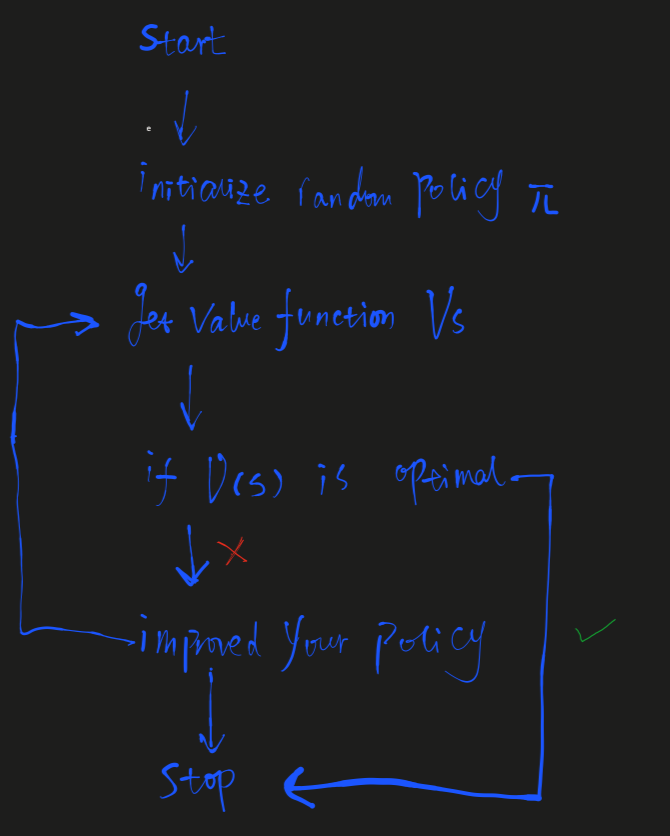 Start
e
initialize random policy π
get Value function Vs
if V(s) is optimal
improved Your policy
Stop